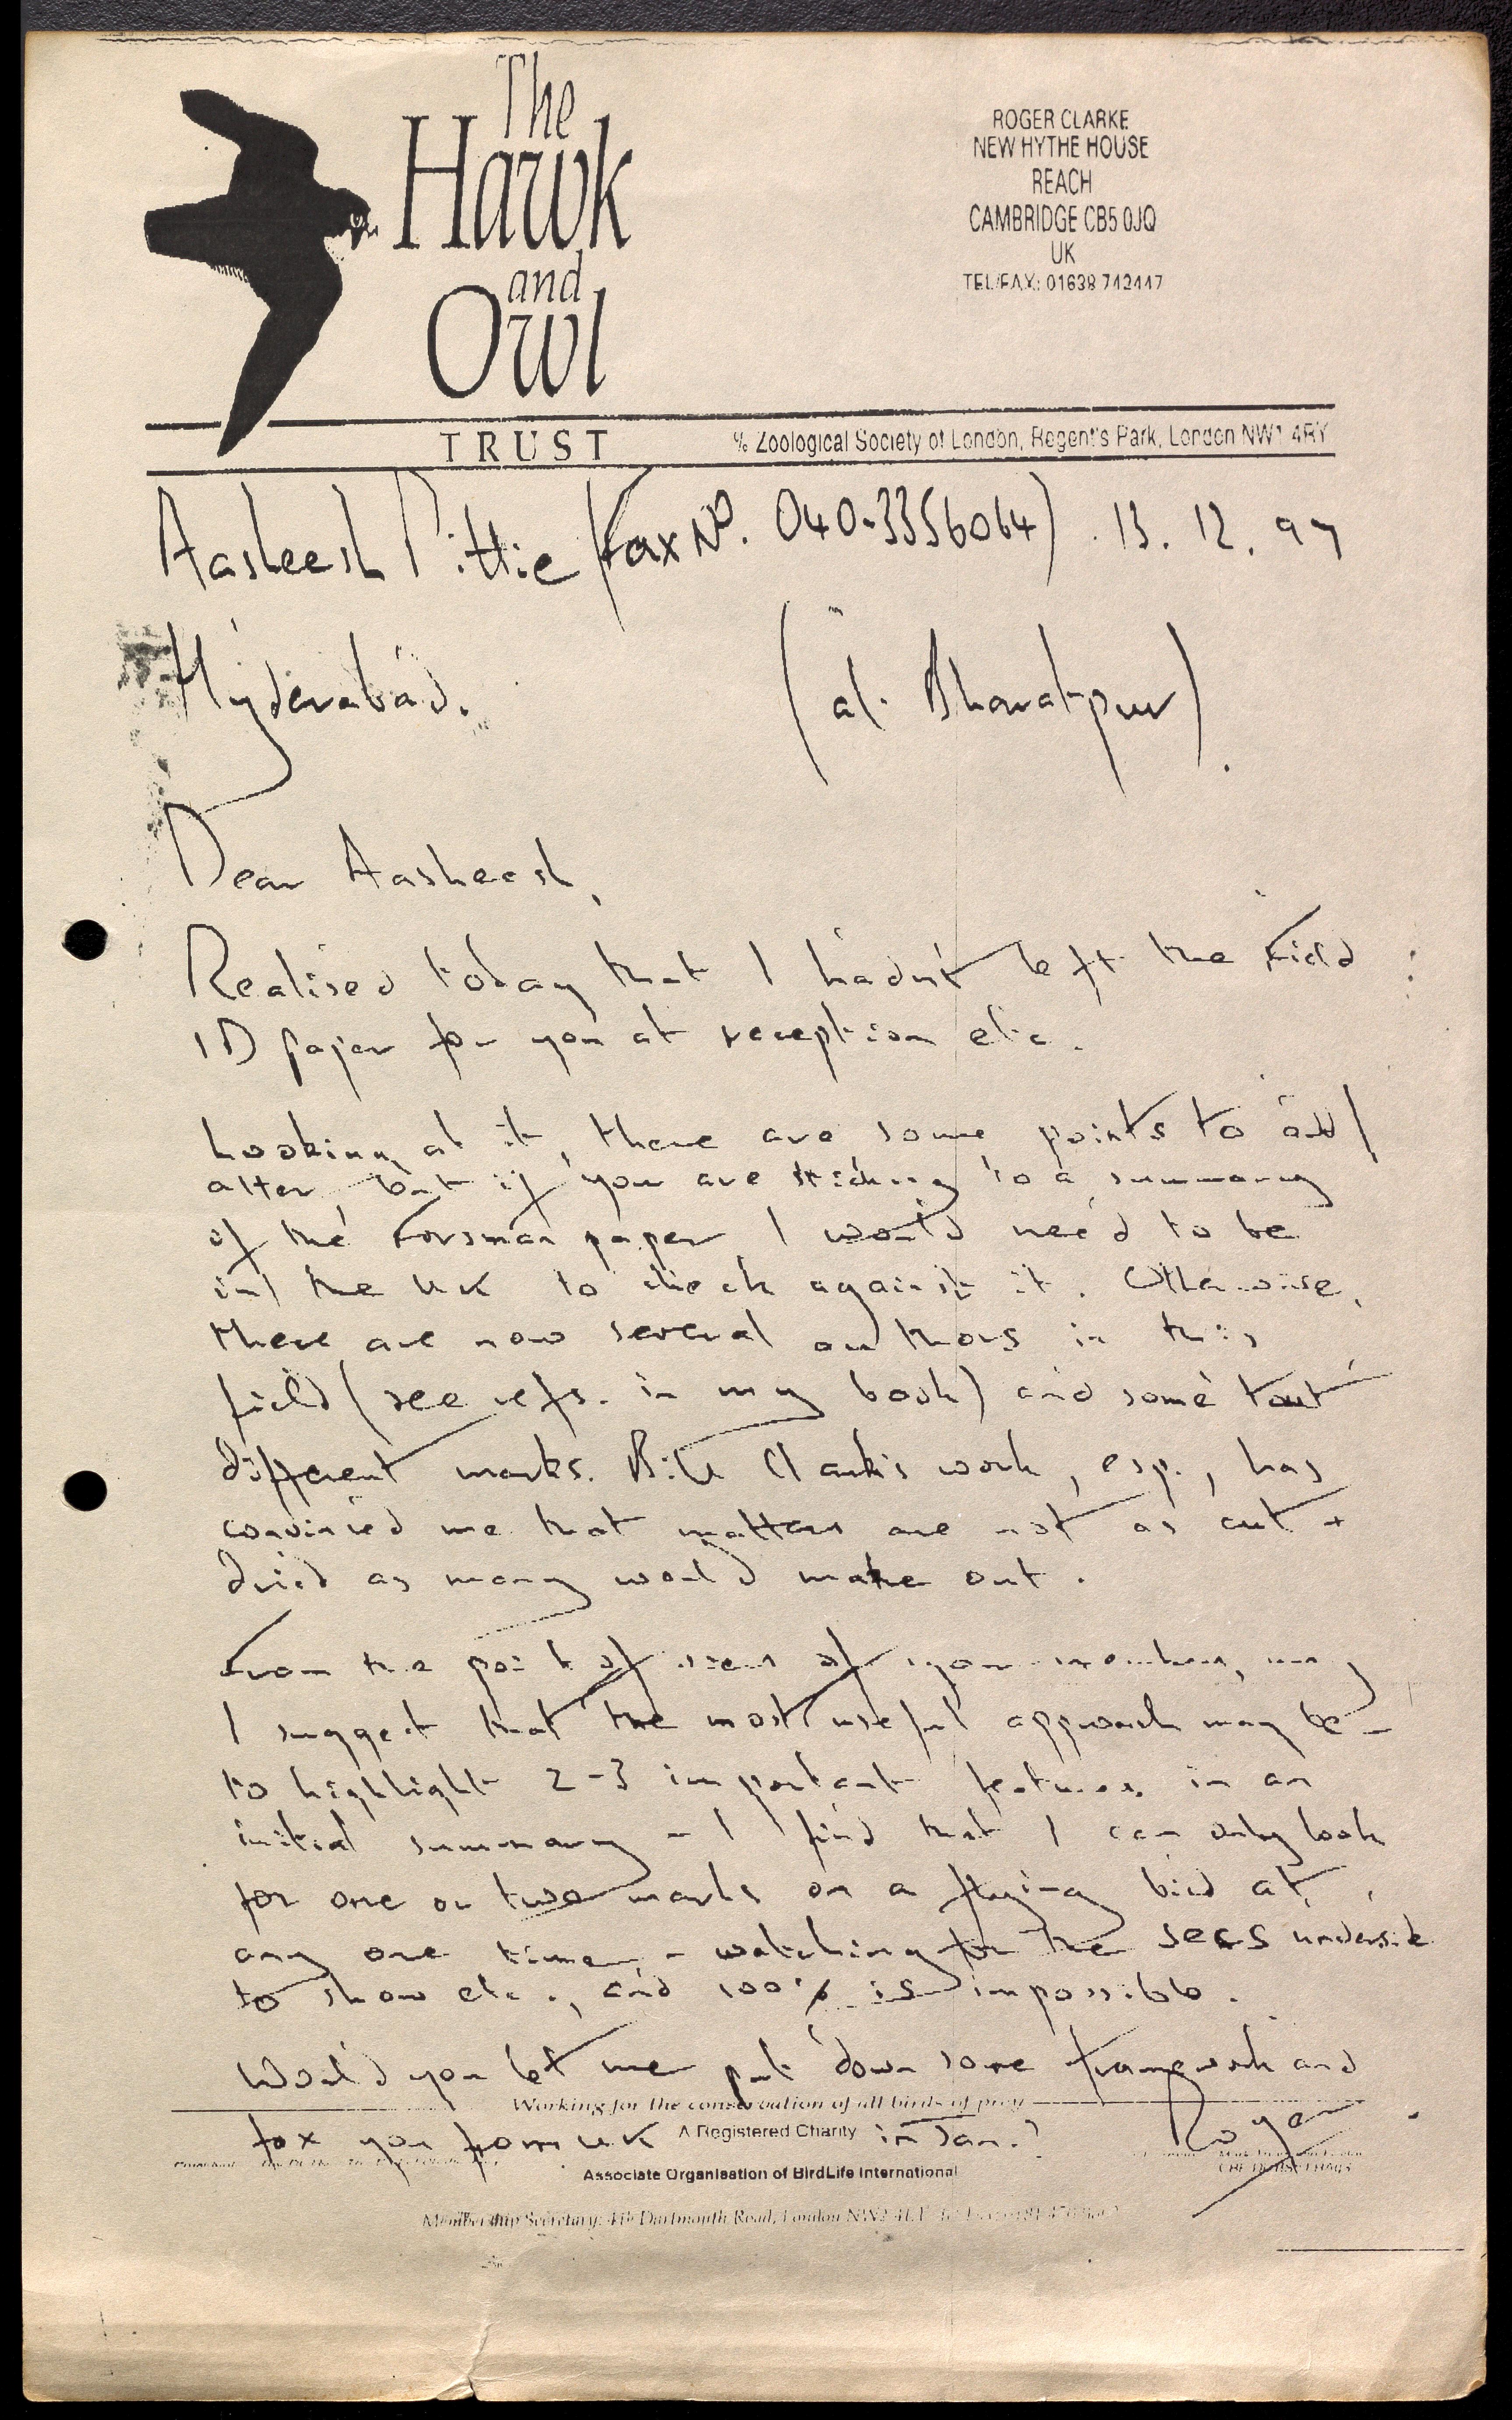 The
Hawk
and
Owl
TRUST
ROGER CLARKE
NEW HYTHE HOUSE
REACH
CAMBRIDGE CB5 0JQ
UK
TEL/FAX: 01638 742447
c/o Zoological Society of London, Regent's Park, London NW1 4RY
Aasheesh Pittie (Fax No. 040-3356064) . 13. 12. 97
Hyderabad. (at Bharatpur).
Dear Aasheesh,
Realised today that I hadn't left the Field
ID paper for you at reception etc.
Looking at it, there are some points to add/
alter but if you are sticking to a summary
of the Forsman paper I would need to be
in the UK to check against it. Otherwise,
there are now several authors in this
field (see refs. in my book) and some tout
different marks. Bill Clark's work, esp., has
convinced me that matters are not as cut +
dried as many would make out.
From the point of view of your members, may
I suggest that the most useful approach may be
to highlight 2-3 important features in an
initial summary - I find that I can only look
for one or two marks on a flying bird at
any one time - watching for the secs underside
to show etc., and 100% is impossible.
Would you let me put down some framework and
Working for the conservation of all birds of prey
fax you from UK in Jan.? Roger
A Registered Charity
Associate Organisation of BirdLife International
Membership Secretary: Dartmouth Road, London NW2